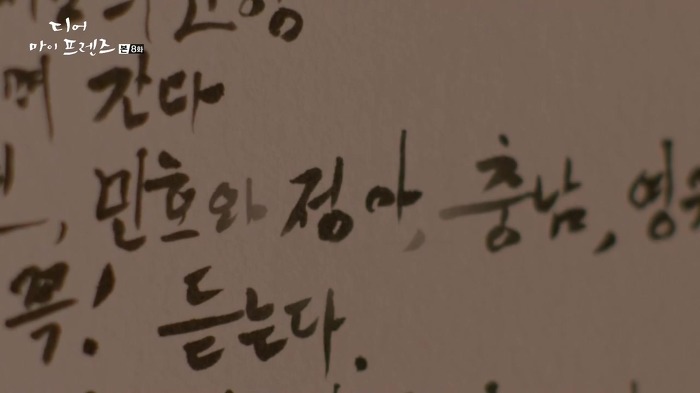 디어
마이 프렌즈 본 8화
고향
며 간다
, 민호와 정아, 충남, 영
쪽! 듣는다.